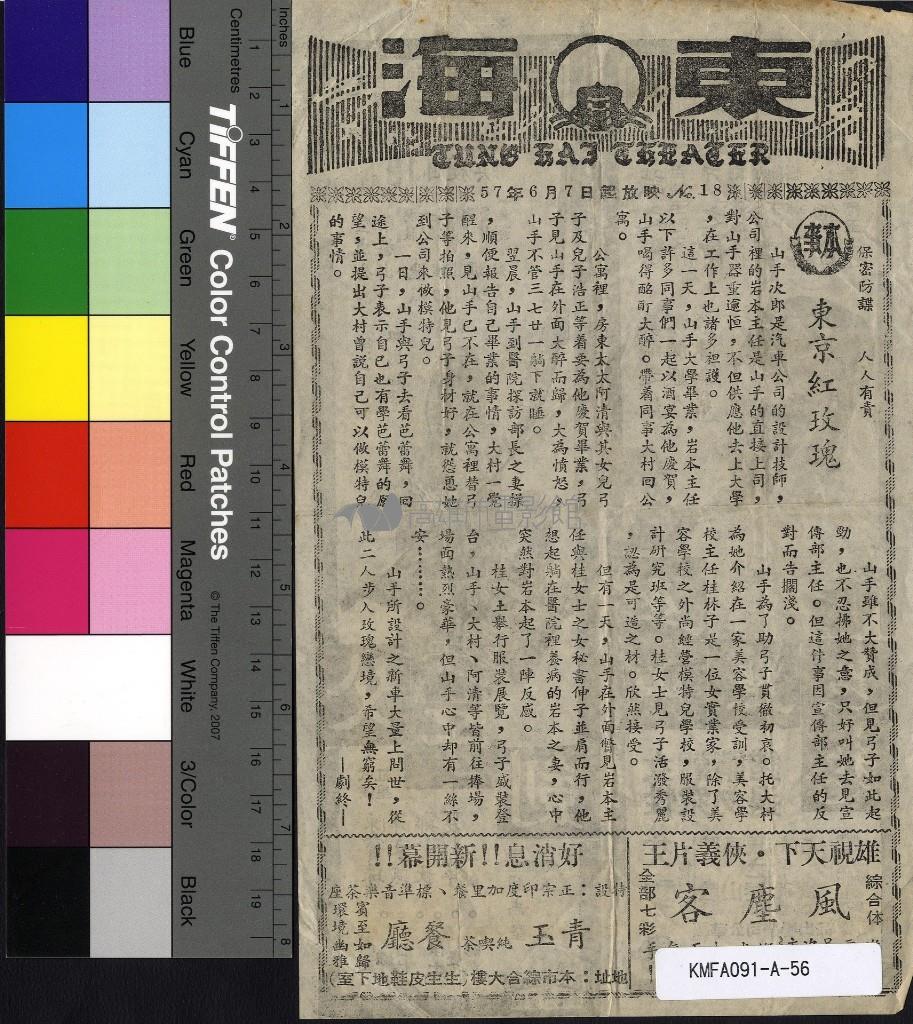 東海
TUNG HAI THEATER
57年6月7日起放映 No.18
保密防諜 人人有責
本事
東京紅玫瑰
山手次郎是汽車公司的設計技師,
公司裡的岩本主任是山手的直接上司,
對山手器重逾恒,不但供應他去上大學
,在工作上也諸多袒護。
這一天,山手大學畢業,岩本主任
以下許多同事們一起以酒宴為他慶賀,
山手喝得酩酊大醉。帶着同事大村回公
寓。
公寓裡,房東太太阿清與其女兒弓
子及兒子浩正等着要為他慶賀畢業,弓
子見山手在外面大醉而歸,大為憤怒,
山手不管三七廿一躺下就睡。
翌晨,山手到醫院探訪部長之妻操
,順便報告自己畢業的事情,大村一覺
醒來,見山手已不在,就在公寓裡替弓
子等拍照,他見弓子身材好,就慫恿她
到公司來做模特兒。
一日,山手與弓子去看芭蕾舞,回
途上,弓子表示自己也有學芭蕾舞的願
望,並提出大村曾說自己可以做模特兒
的事情。
山手雖不大贊成,但見弓子如此起
勁,也不忍拂她之意,只好叫她去見宣
傳部主任。但這件事因宣傳部主任的反
對而告擱淺。
山手為了助弓子貫徹初衷。托大村
為她介紹在一家美容學校受訓,美容學
校主任桂林子是一位女實業家,除了美
容學校之外尚經營模特兒學校,服裝設
計研究班等等。桂女士見弓子活潑秀麗
,認為是可造之材。欣然接受。
但有一天,山手在外面瞥見岩本主
任與桂女士之女秘書伸子並肩而行,他
想起躺在醫院裡養病的岩本之妻,心中
突然對岩本起了一陣反感。
桂女士舉行服裝展覽,弓子盛裝登
台,山手、大村、阿清等皆前往捧場,
場面熱烈豪華,但山手心中却有一絲不
安………。
山手所設計之新車大量上問世,從
此二人步入玫瑰戀境,希望無窮矣!
——劇終——
雄視天下·俠義片王
綜合体
風塵客
全部七彩
好消息!!新開幕!!
特設:正宗印度加里餐、標準音樂茶座
青玉 純喫茶 餐廳
賓至如歸
環境幽雅
地址:本市綜合大樓(生生皮鞋地下室)
高雄市電影館
KMFA091-A-56
Inches
Centimetres
1 2 3 4 5 6 7 8
1 2 3 4 5 6 7 8 9 10 11 12 13 14 15 16 17 18 19
TIFFEN® Color Control Patches
© The Tiffen Company, 2007
Blue
Cyan
Green
Yellow
Red
Magenta
White
3/Color
Black